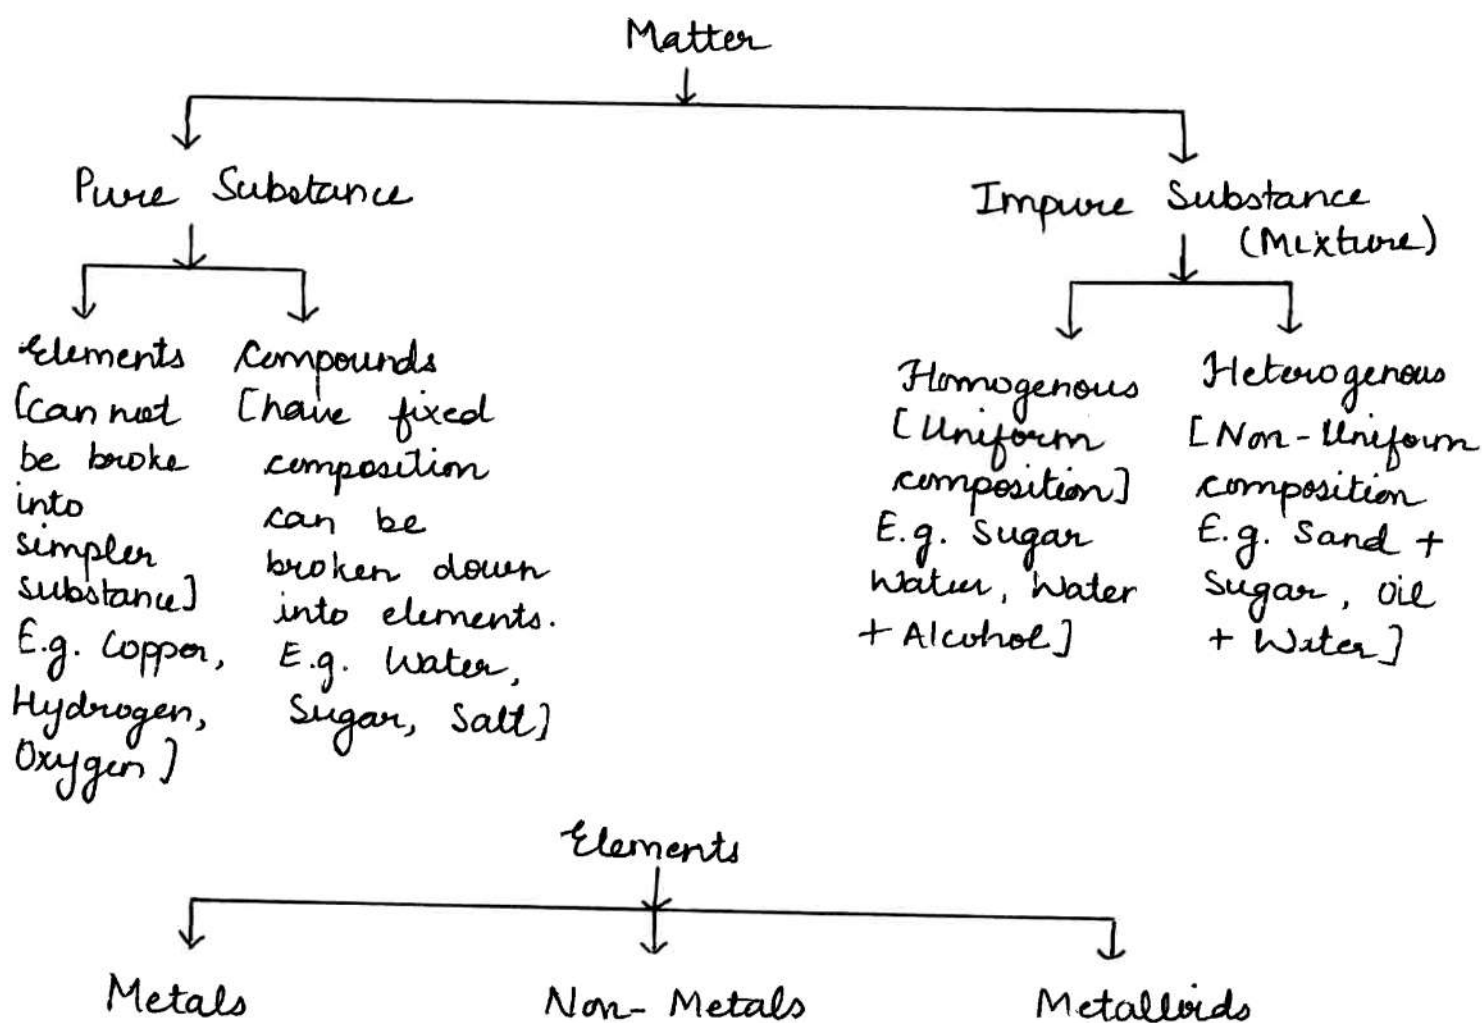 Matter
Pure Substance
Impure Substance
(Mixture)
Elements
[can not
be broke
into
simpler
substance]
E.g. Copper,
Hydrogen,
Oxygen]
Compounds
[have fixed
composition
can be
broken down
into elements.
E.g. Water,
Sugar, Salt]
Homogenous
[Uniform
composition]
E.g. Sugar
Water, Water
+ Alcohol]
Heterogenous
[Non-Uniform
composition
E.g. Sand +
Sugar, Oil
+ Water]
Elements
Metals
Non-Metals
Metalloids